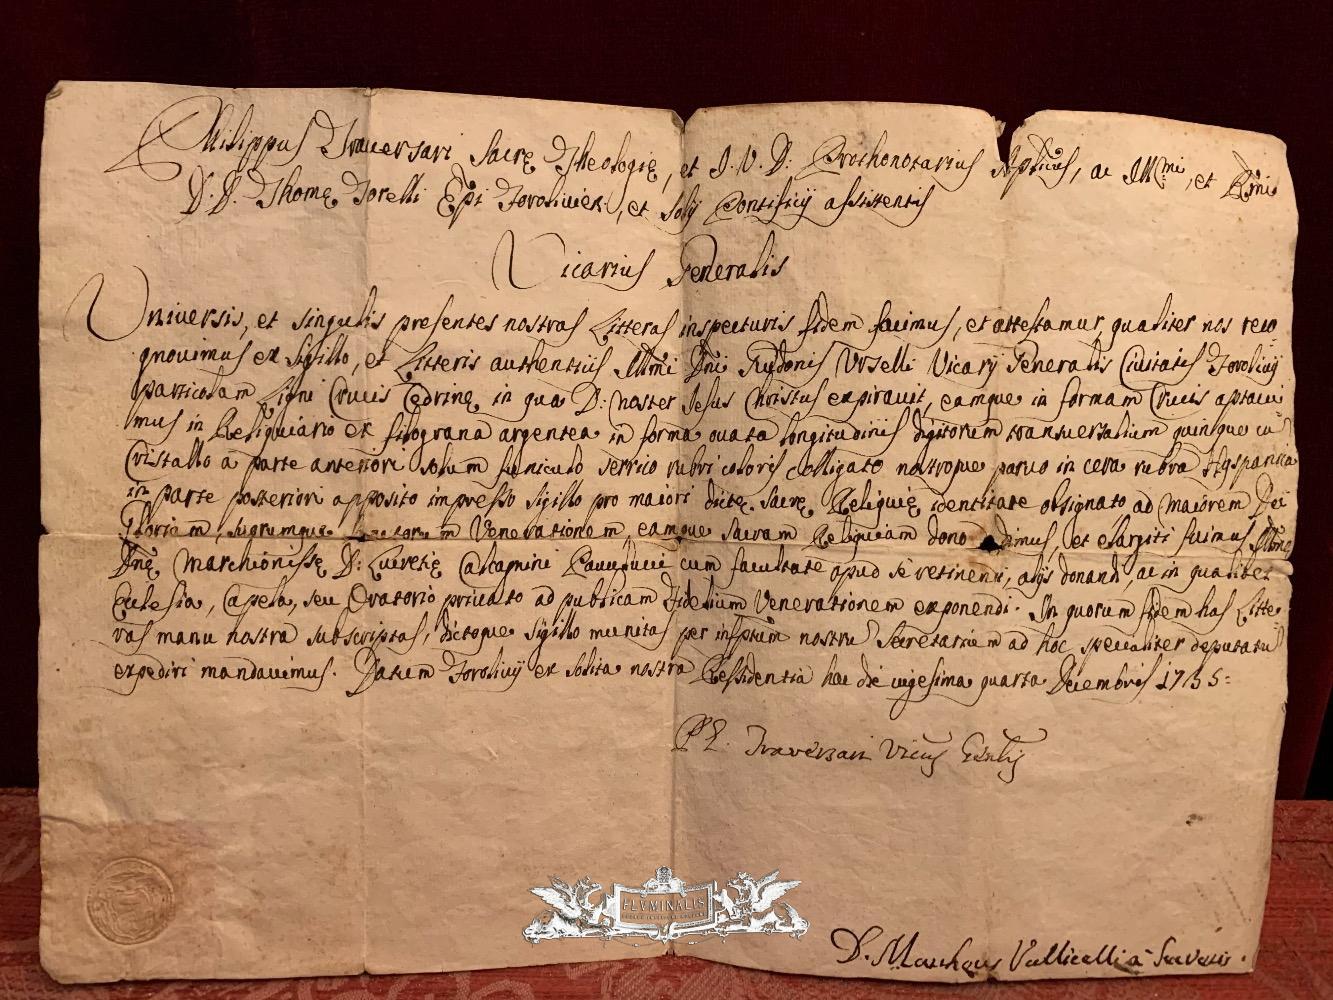 Philippus Traversari Sacrę Theologię, et I. V. D: Prothonotarius Aplicus, ac Illmi, et Rmi
D. D. Thomę Torelli Epi Foroliviēn, et Solij Pontificij assistentis
Vicarius Generalis
Universis, et singulis presentes nostras Litteras inspecturis fidem facimus, et attestamur, qualiter nos reco
gnovimus ex sigillo, et Litteris authenticis Illmi Dni Urselli Vicarij Generalis Civitatis Forolivij
particolam Ligni Crucis Cedrinę in qua D: noster Jesus Christus expiravit, eamque in formam Crucis aptavi
mus in Reliquiario ex filograna argentea in forma ovata longitudinis digitorum transversalium quinque cū
Cristallo a parte anteriori solum funiculo serrico rubri coloris colligato nostroque parvo in cera rubra Hyspanica
in parte posteriori apposito impresso sigillo pro maiori dictę Sacrę Reliquię identitate obsignato, ad maiorem Dei
Gloriam, suorumque Venerationem, eamque sacram Reliquiam dono dedimus, et elargiti fuimus Illmę
Dnę Marchionissę D: Lucretię Paulucci cum facultate apud se retinendi, alijs donandi, ac in qualibet
Eclesia, Capela, seu Oratorio privato ad publicam Fidelium Venerationem exponendi. In quorum fidem has Litte=
ras manu nostra subscriptas, dictoque sigillo munitas per infptum nostrū Secretarium ad hoc specialiter deputatū
expediri mandavimus. Datum Forolivij ex solita nostra Residentia hac die vigesima quarta Decembris 1735=
Ph: Traversari Vicus Gnlis
D. Vallicelli a Secretis.
FLVMINALIS